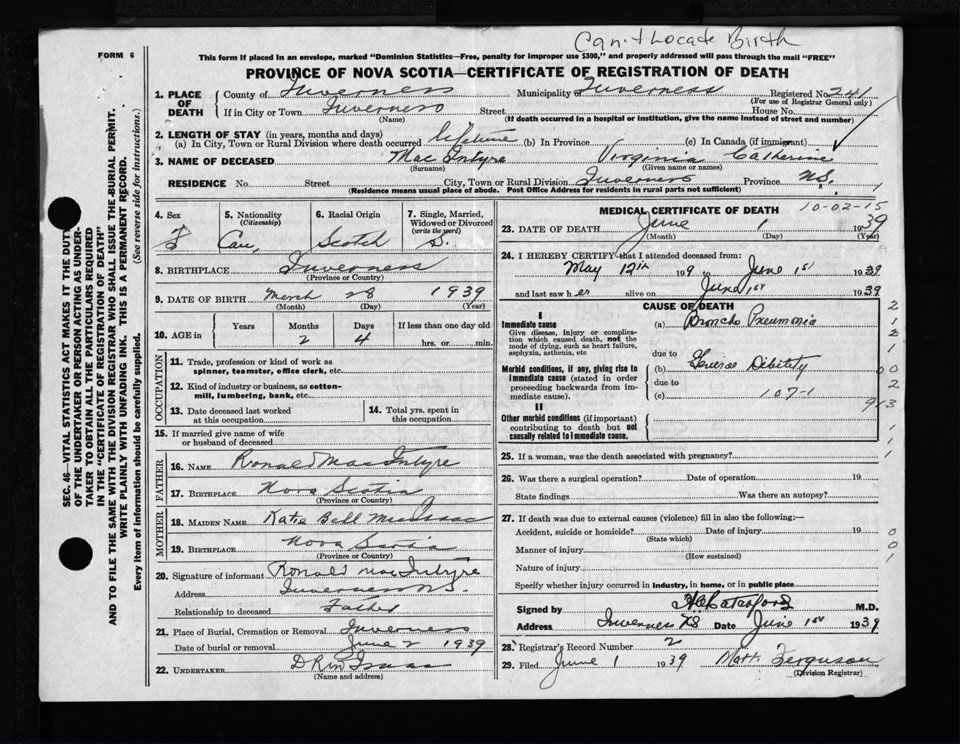 Can't Locate Birth
FORM 6
This form if placed in an envelope, marked "Dominion Statistics—Free, penalty for improper use $300," and properly addressed will pass through the mail "FREE"
PROVINCE OF NOVA SCOTIA—CERTIFICATE OF REGISTRATION OF DEATH
SEC. 46—VITAL STATISTICS ACT MAKES IT THE DUTY
OF THE UNDERTAKER OR PERSON ACTING AS UNDER-
TAKER TO OBTAIN ALL THE PARTICULARS REQUIRED
IN THE "CERTIFICATE OF REGISTRATION OF DEATH"
AND TO FILE THE SAME WITH THE DIVISION REGISTRAR WHO SHALL ISSUE THE BURIAL PERMIT.
WRITE PLAINLY WITH UNFADING INK. THIS IS A PERMANENT RECORD.
Every item of information should be carefully supplied. (See reverse side for instructions.)
1. PLACE OF DEATH
County of Inverness Municipality of Inverness Registered No 241
(For use of Registrar General only)
If in City or Town Inverness Street House No.
(Name) (If death occurred in a hospital or institution, give the name instead of street and number)
2. LENGTH OF STAY (in years, months and days)
(a) In City, Town or Rural Division where death occurred lifetime (b) In Province (c) In Canada (if immigrant)
3. NAME OF DECEASED MacIntyre Virginia Catherine
(Surname) (Given name or names)
RESIDENCE No. Street City, Town or Rural Division Inverness Province N.S.
(Residence means usual place of abode. Post Office Address for residents in rural parts not sufficient)
4. Sex F
5. Nationality (Citizenship) Can.
6. Racial Origin Scotch
7. Single, Married, Widowed or Divorced (write the word) S.
8. BIRTHPLACE Inverness
(Province or Country)
9. DATE OF BIRTH March 28 1939
(Month) (Day) (Year)
10. AGE in Years Months Days If less than one day old
2 4 hrs. or min.
OCCUPATION
11. Trade, profession or kind of work as
spinner, teamster, office clerk, etc.
12. Kind of industry or business, as cotton-
mill, lumbering, bank, etc.
13. Date deceased last worked
at this occupation
14. Total yrs. spent in
this occupation
15. If married give name of wife
or husband of deceased
FATHER
16. NAME Ronald MacIntyre
17. BIRTHPLACE Nova Scotia
(Province or Country)
MOTHER
18. MAIDEN NAME Katie Bell MacIsaac
19. BIRTHPLACE Nova Scotia
(Province or Country)
20. Signature of informant Ronald MacIntyre
Address Inverness N.S.
Relationship to deceased Father
21. Place of Burial, Cremation or Removal Inverness
Date of burial or removal June 2 1939
22. UNDERTAKER
(Name and address)
MEDICAL CERTIFICATE OF DEATH 10-02-15
23. DATE OF DEATH June 1 1939
(Month) (Day) (Year)
24. I HEREBY CERTIFY that I attended deceased from:
May 12th 19 9 to June 1st 1939
and last saw her alive on June 1st 1939
CAUSE OF DEATH
I
Immediate cause
Give disease, injury or complica-
tion which caused death, not the
mode of dying, such as heart failure,
asphyxia, asthenia, etc
(a) Broncho Pneumonia
due to
Morbid conditions, if any, giving rise to
immediate cause (stated in order
proceeding backwards from im-
mediate cause).
(b) General Debility
due to
(c) 107-1
II
Other morbid conditions (if important)
contributing to death but not
causally related to immediate cause.
25. If a woman, was the death associated with pregnancy?
26. Was there a surgical operation? Date of operation 19
State findings Was there an autopsy?
27. If death was due to external causes (violence) fill in also the following:—
Accident, suicide or homicide? Date of injury 19
(State which)
Manner of injury
(How sustained)
Nature of injury
Specify whether injury occurred in industry, in home, or in public place
Signed by M.D.
Address Inverness N.S. Date June 1st 1939
28. Registrar's Record Number 2
29. Filed June 1 1939 Matt. Ferguson
(Division Registrar)